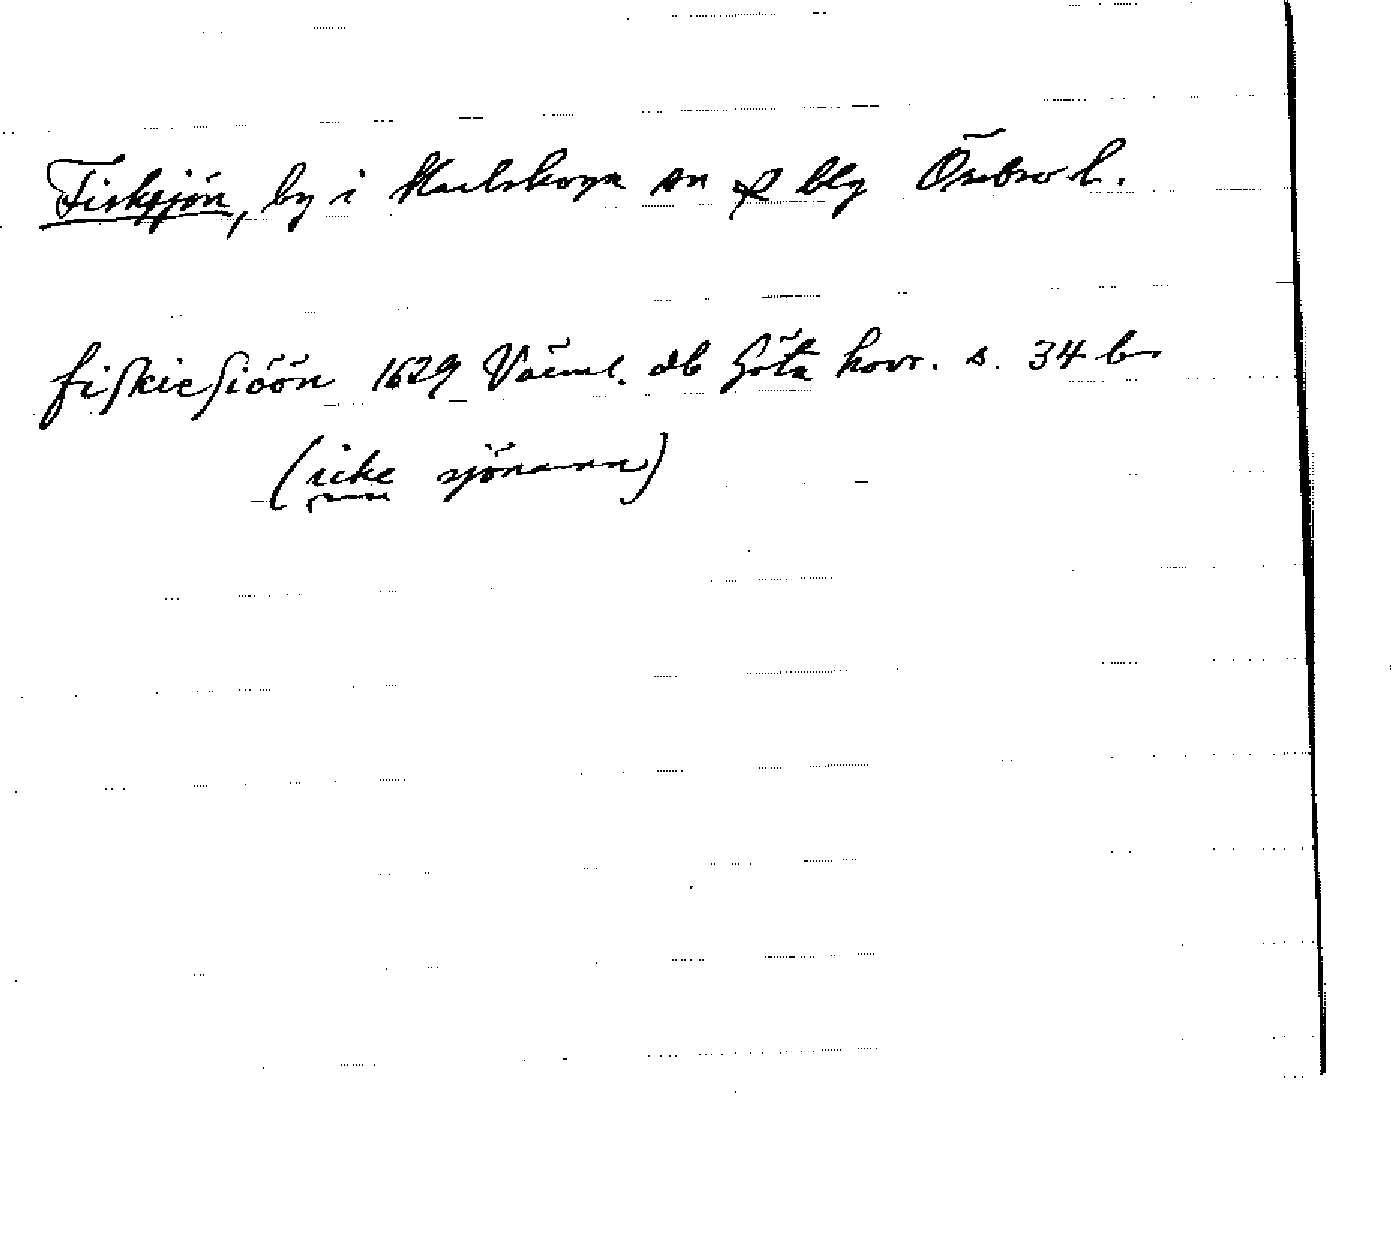 Fisksjön, by i Karlskoga sn & blg Örebro l.
fiskiesiöön 1629 Värml. db Göta hovr. s. 34 b
(icke sjönamn)